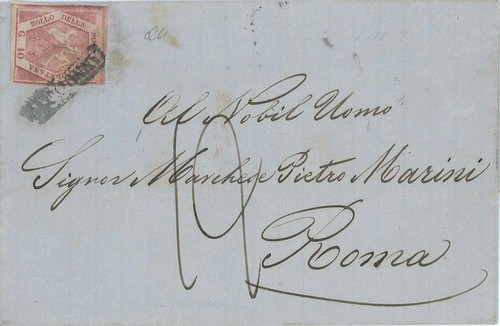 BOLLO DELLA
G 10
Al Nobil Uomo
Signor Marchese Pietro Marini
Roma